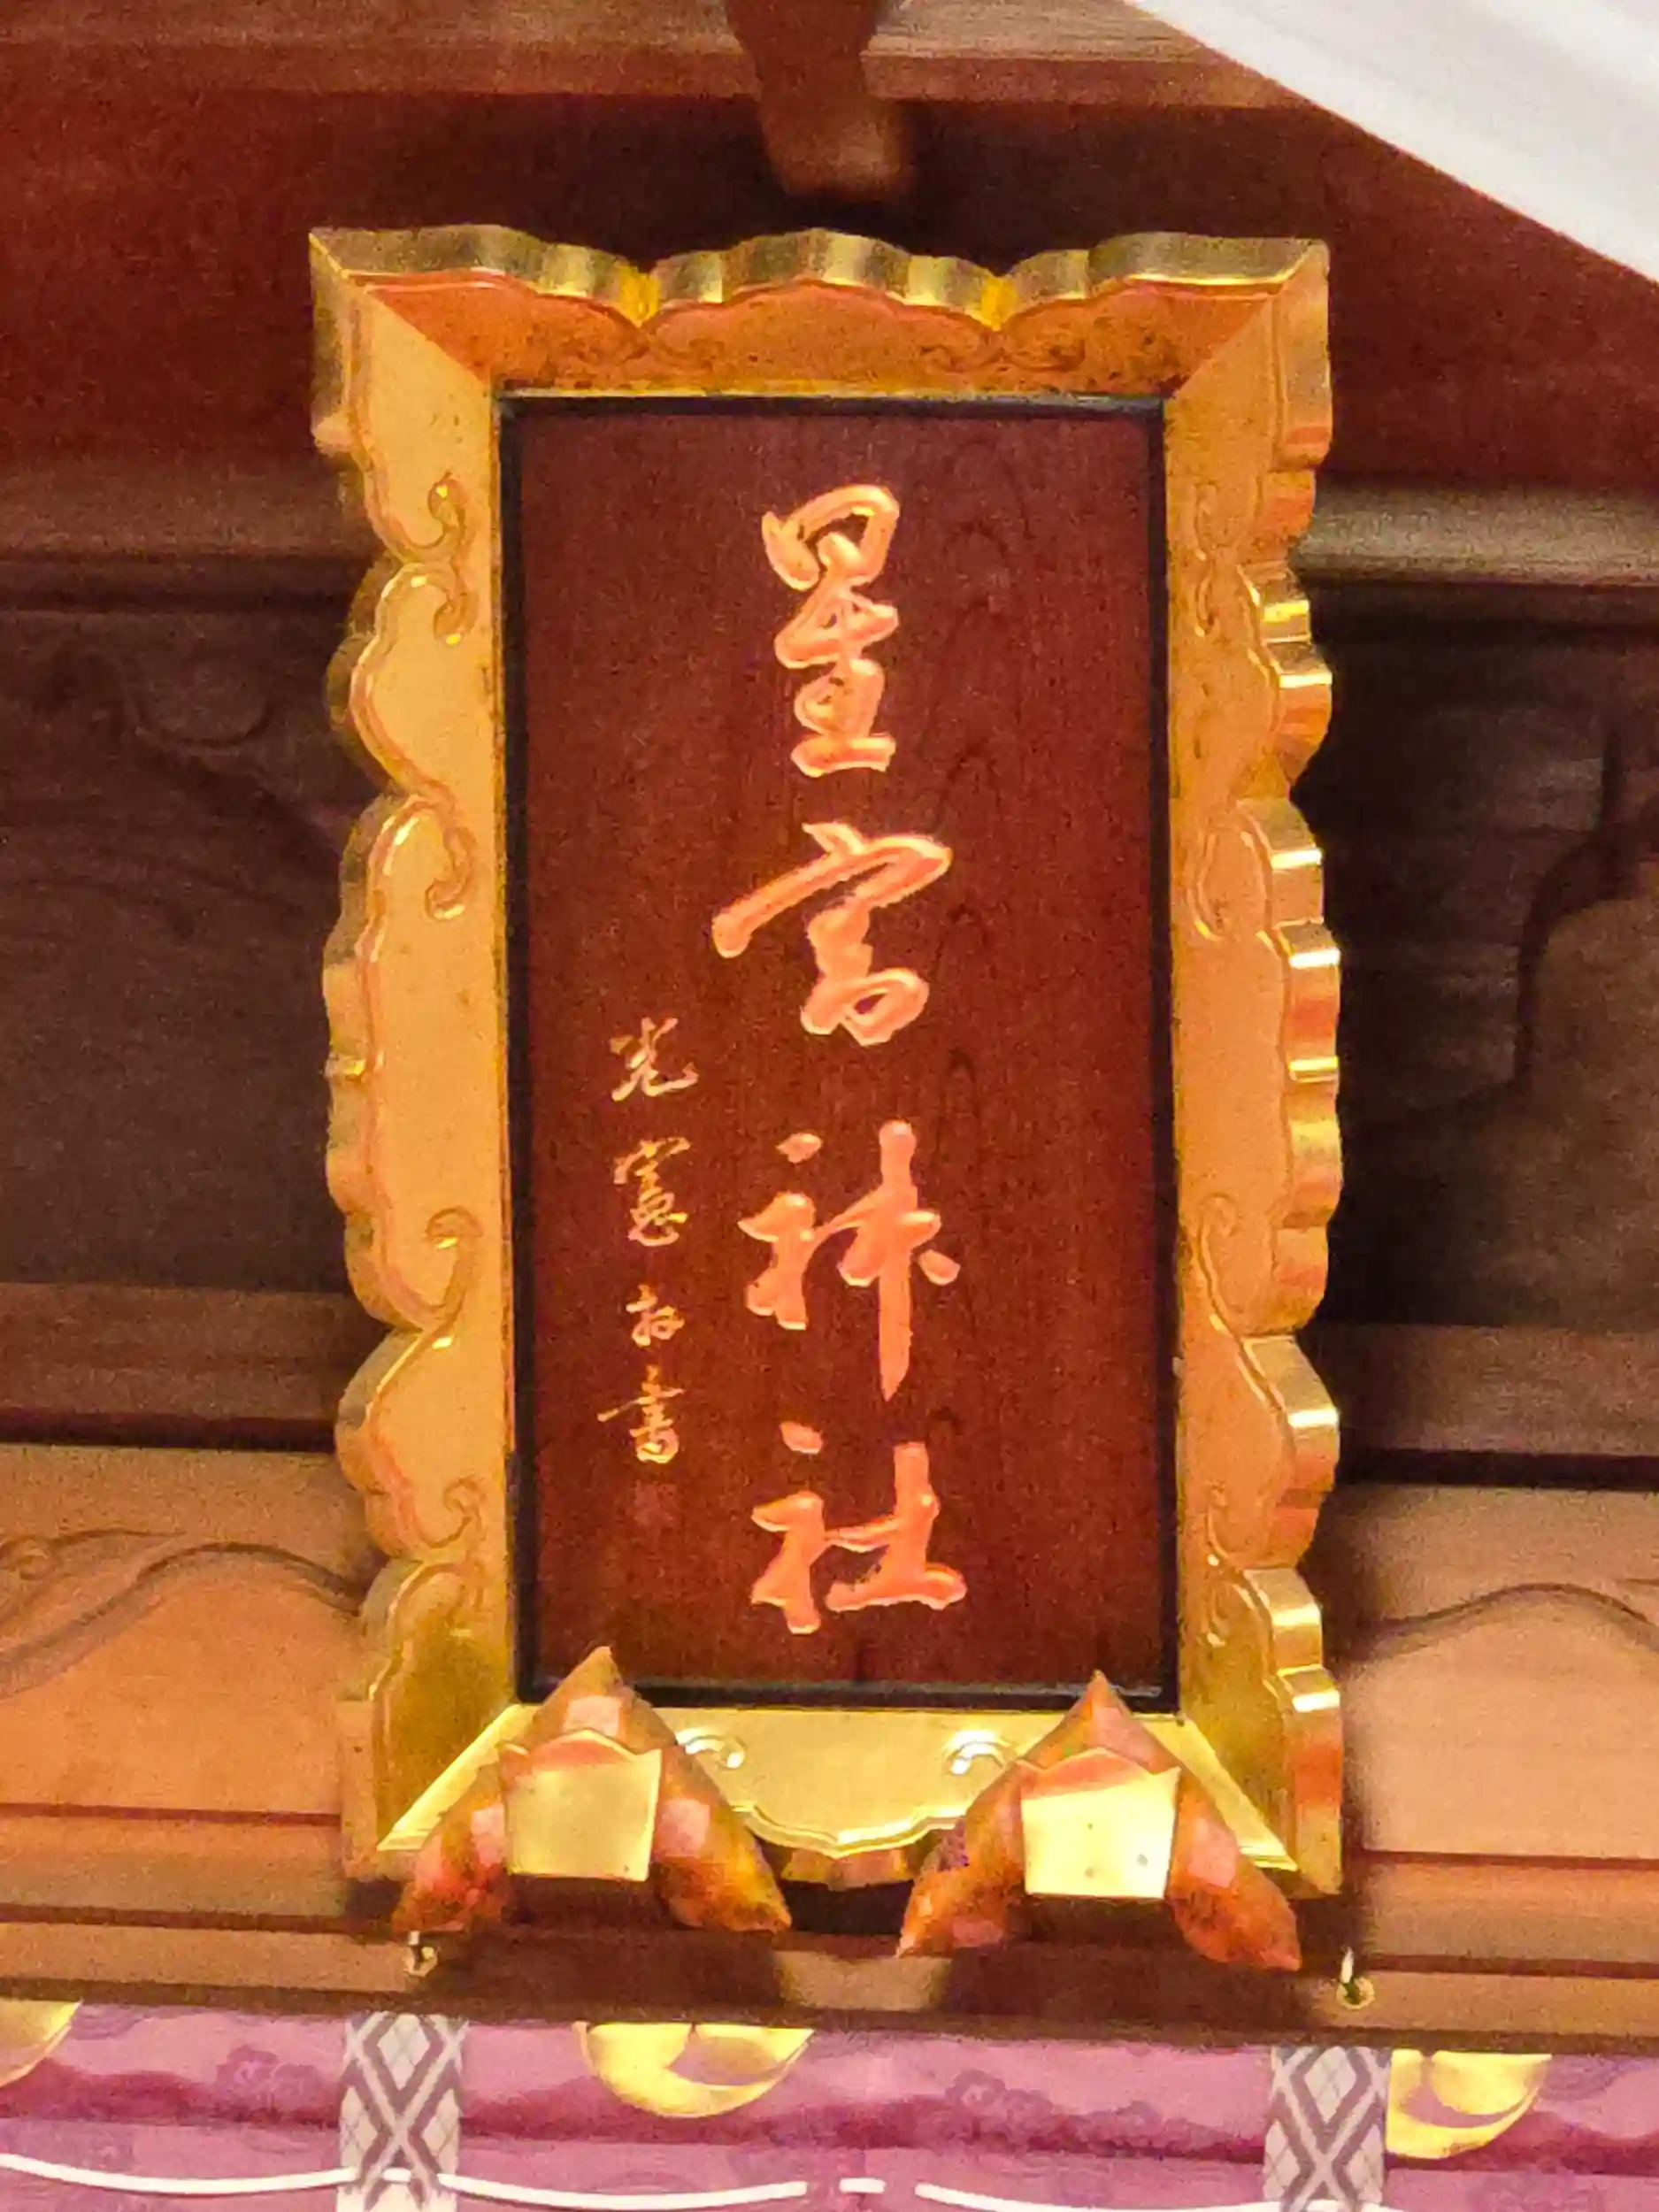 星宮神社
光憲敬書